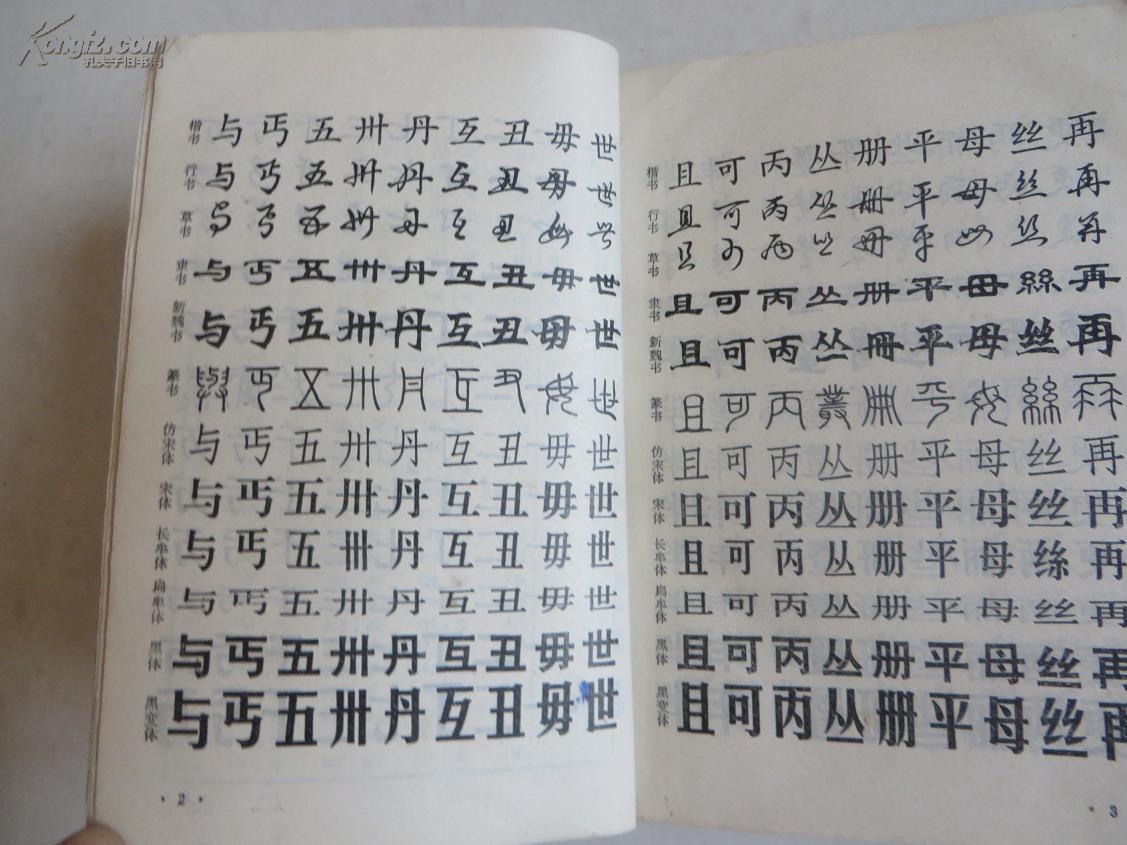 Kongfz.com
孔夫子旧书网
楷书 与 丐 五 卅 丹 互 丑 毋 世
行书 与 丐 五 卅 丹 互 丑 毋 世
草书 与 丐 五 卅 丹 互 丑 毋 世
隶书 与 丐 五 卅 丹 互 丑 毋 世
新魏书 与 丐 五 卅 丹 互 丑 毋 世
篆书 與 丐 五 卅 丹 互 丑 毋 世
仿宋体 与 丐 五 卅 丹 互 丑 毋 世
宋体 与 丐 五 卅 丹 互 丑 毋 世
长牟体 与 丐 五 卅 丹 互 丑 毋 世
扁牟体 与 丐 五 卅 丹 互 丑 毋 世
黑体 与 丐 五 卅 丹 互 丑 毋 世
黑变体 与 丐 五 卅 丹 互 丑 毋 世
·2·
楷书 且 可 丙 丛 册 平 母 丝 再
行书 且 可 丙 丛 册 平 母 丝 再
草书 且 可 丙 丛 册 平 母 丝 再
隶书 且 可 丙 丛 册 平 母 絲 再
新魏书 且 可 丙 丛 册 平 母 丝 再
篆书 且 可 丙 叢 册 平 母 絲 再
仿宋体 且 可 丙 丛 册 平 母 丝 再
宋体 且 可 丙 丛 册 平 母 丝 再
长牟体 且 可 丙 丛 册 平 母 丝 再
扁牟体 且 可 丙 丛 册 平 母 丝 再
黑体 且 可 丙 丛 册 平 母 丝 再
黑变体 且 可 丙 丛 册 平 母 丝 再
·3